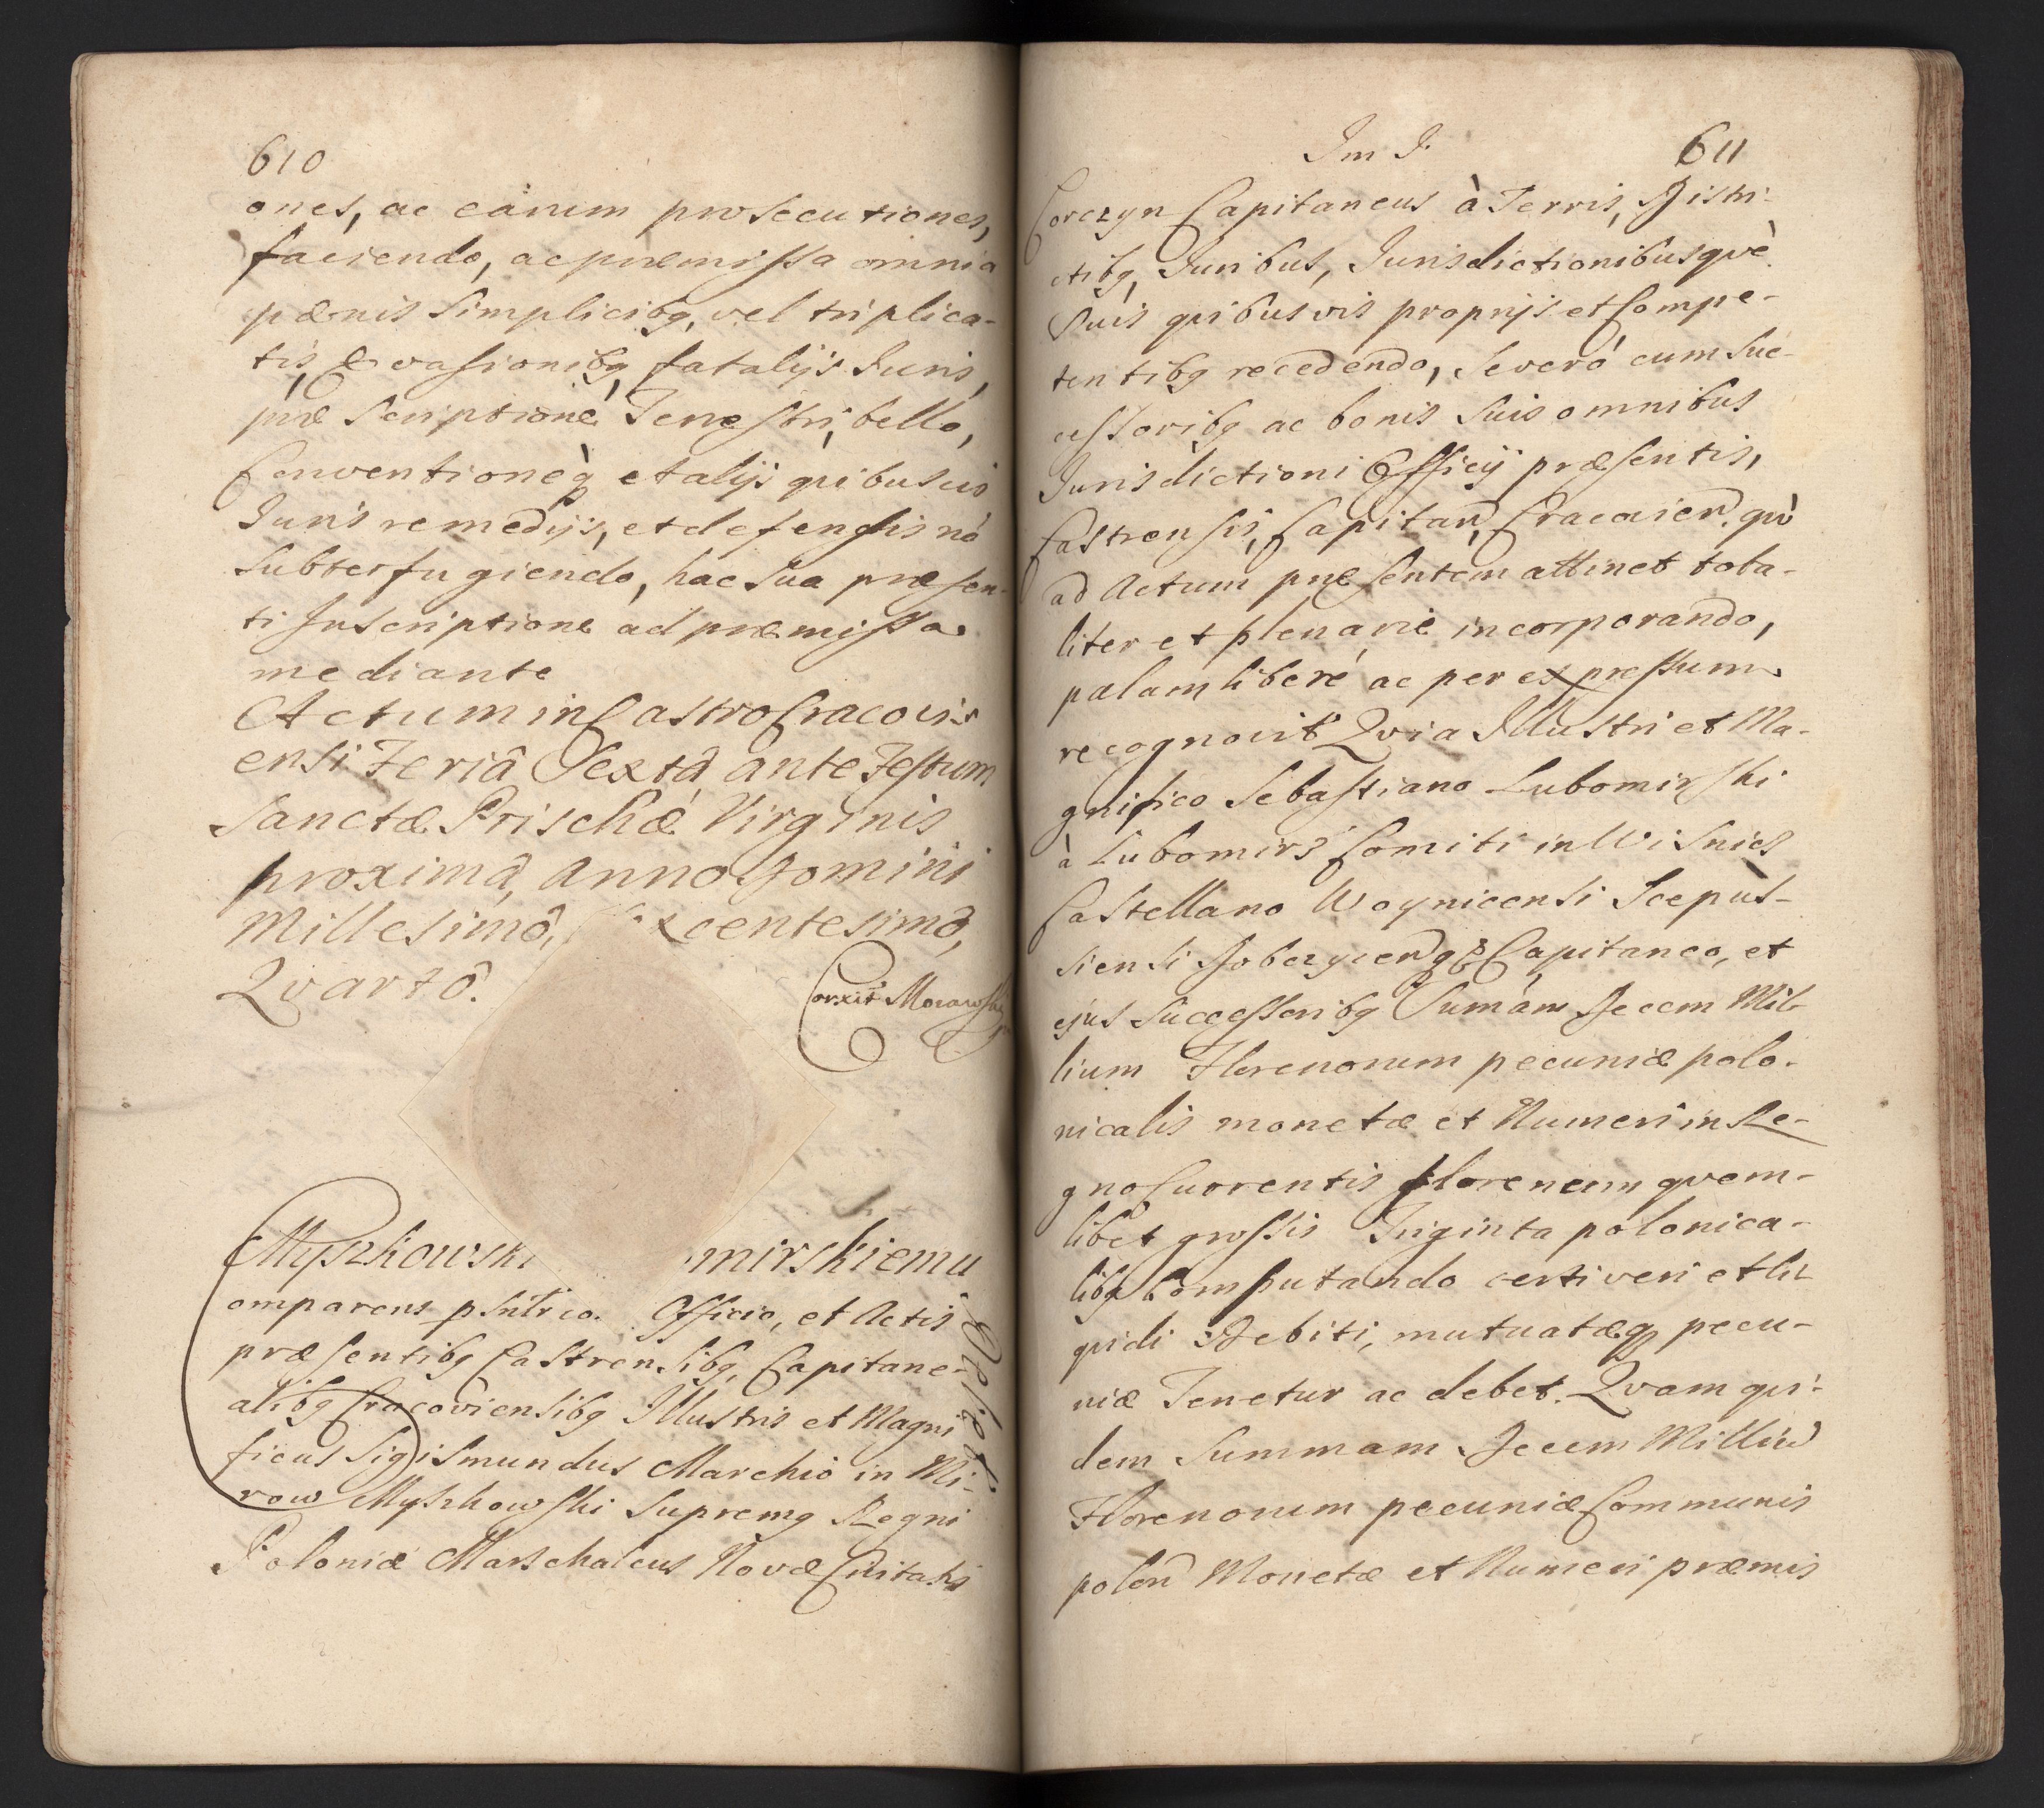 610
ones, ac earum prosecutiones,
faciendo, ac præmissa omnia
pænis simplicibq, vel triplica-
tis, Evasionibq, fatalijs Juris,
præscriptione Terrestri, bello,
Conventioneq et alijs quibusvis
Juris remedijs, et defensis nō
subterfugiendo, hac sua præsen-
ti Inscriptione ad præmissa
mediante
Actum in Castro Cracovi-
ensi Feriâ Sextâ ante Festum
Sanctæ Prischæ Virginis
proximâ, Anno Domini
Millesimô, centesimô,
Qvartô.
Corxit Morawski
Myszkowski mirskiemu
omparens psnlr co. Officio, et Actis
præsentibq Castrensibq, Capitane-
alibq Cracoviensibq Illustris et Magni
ficus Sigismundus Marchio in Mi-
row Myszkowski Supremq Regni
Poloniæ Marschalcus Novæ Civitatis
Oblig
Im J.
611
Corczyn Capitaneus à Terris, Distri-
ctibq, Juribus, Jurisdictionibusqvè
Suis quibusvis proprijs et Compe-
tentibq recedendo, se verò cum suc-
cessoribq ac bonis suis omnibus
Jurisdictioni Officij præsentis,
Castrensis, Capitan, Cracovien. qvò
ad Actum præsentem attinet tota-
liter et plenariè incorporando,
palam liberè ac per expressum
recognovit Qvia Illustri et Ma-
gnifico Sebastiano Lubomirski
à Lubomirs Comiti in Wisnics
Castellano Woynicensi Scepus-
siensi Dobczycen Capitaneo, et
ejus successoribq Sumam Decem Mil-
lium Florenorum pecuniæ polo-
nicalis monetæ et Numeri in Re-
gno Currentis florenum qvem-
libet grossis Triginta polonica-
libq Computando certi veri et li-
quidi Debiti, mutuatæq pecu-
niæ Tenetur ac debet. Qvam qui-
dem Summam Decem Milliū
Florenorum pecuniæ Communis
polon Monetæ et Numeri præmis